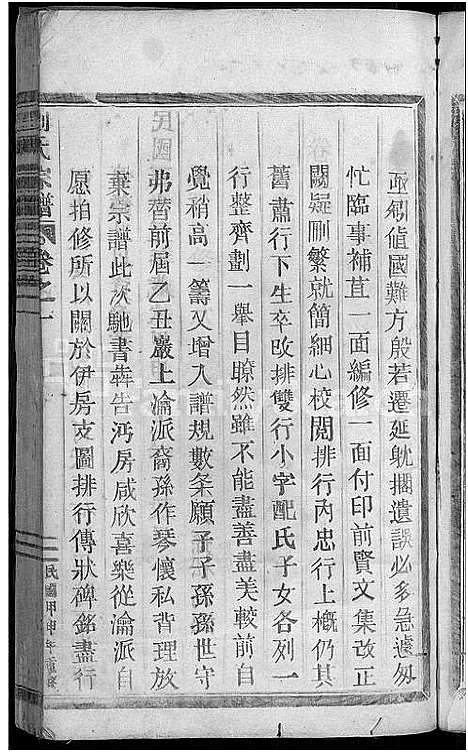 亟刱値國難方殷若遷延躭擱遺誤必多急遽匆
忙臨事補苴一面編修一面付印前賢文集改正
闕疑刪繁就簡細心校閱排行內忠行上概仍其
舊肅行下生卒改排雙行小字配氏子女各列一
行整齊劃一舉目瞭然雖不能盡善盡美較前自
覺稍高一籌又增入譜規數条願子子孫孫世守
弗替前屆乙丑巖上瀹派裔孫作琴懷私背理放
棄宗譜此次馳書犇告沔房咸欣喜樂從瀹派自
愿拍修所以關於伊房支圖排行傳狀碑銘盡行
氏宗譜 卷之一
民國甲申年重修